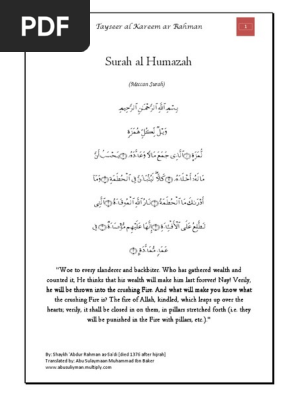 PDF
Tayseer al Kareem ar Rahman
1
Surah al Humazah
(Maccan Surah)
بِسْمِ ٱللَّهِ ٱلرَّحْمَٰنِ ٱلرَّحِيمِ
وَيْلٌ لِّكُلِّ هُمَزَةٍ
لُّمَزَةٍ ۝١ ٱلَّذِى جَمَعَ مَالًا وَعَدَّدَهُۥ ۝٢ يَحْسَبُ أَنَّ
مَالَهُۥٓ أَخْلَدَهُۥ ۝٣ كَلَّا ۖ لَيُنۢبَذَنَّ فِى ٱلْحُطَمَةِ ۝٤ وَمَآ
أَدْرَىٰكَ مَا ٱلْحُطَمَةُ ۝٥ نَارُ ٱللَّهِ ٱلْمُوقَدَةُ ۝٦ ٱلَّتِى
تَطَّلِعُ عَلَى ٱلْأَفْـِٔدَةِ ۝٧ إِنَّهَا عَلَيْهِم مُّؤْصَدَةٌ ۝٨ فِى
عَمَدٍ مُّمَدَّدَةٍۭ ۝٩
"Woe to every slanderer and backbiter. Who has gathered wealth and
counted it, He thinks that his wealth will make him last forever! Nay! Verily,
he will be thrown into the crushing Fire. And what will make you know what
the crushing Fire is? The fire of Allah, kindled, which leaps up over the
hearts; verily, it shall be closed in on them, in pillars stretched forth (i.e. they
will be punished in the Fire with pillars, etc.)."
By: Shaykh 'Abdur Rahman as-Sa'di [died 1376 after hijrah]
Translated by: Abu Sulaymaan Muhammad ibn Baker
www.abusuliyman.multiply.com